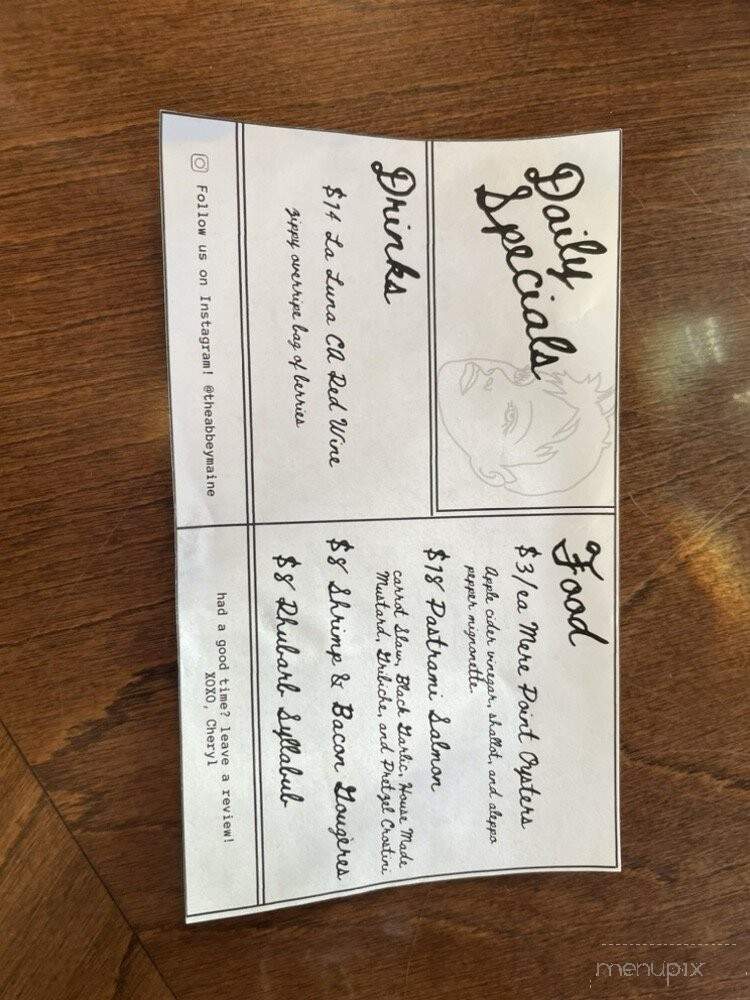 Daily
Specials
Drinks
$14 La Luna CA Red Wine
zippy overripe bag of berries
Food
$3/ea Mere Point Oysters
Apple cider vinegar, shallot, and aleppo
pepper mignonette.
$18 Pastrami Salmon
carrot Slaw, Black Garlic, House Made
Mustard, Gribiche, and Pretzel Crostini
$8 Shrimp & Bacon Gougères
$8 Rhubarb Syllabub
Follow us on Instagram! @theabbeymaine
had a good time? leave a review!
XOXO, Cheryl
menupix